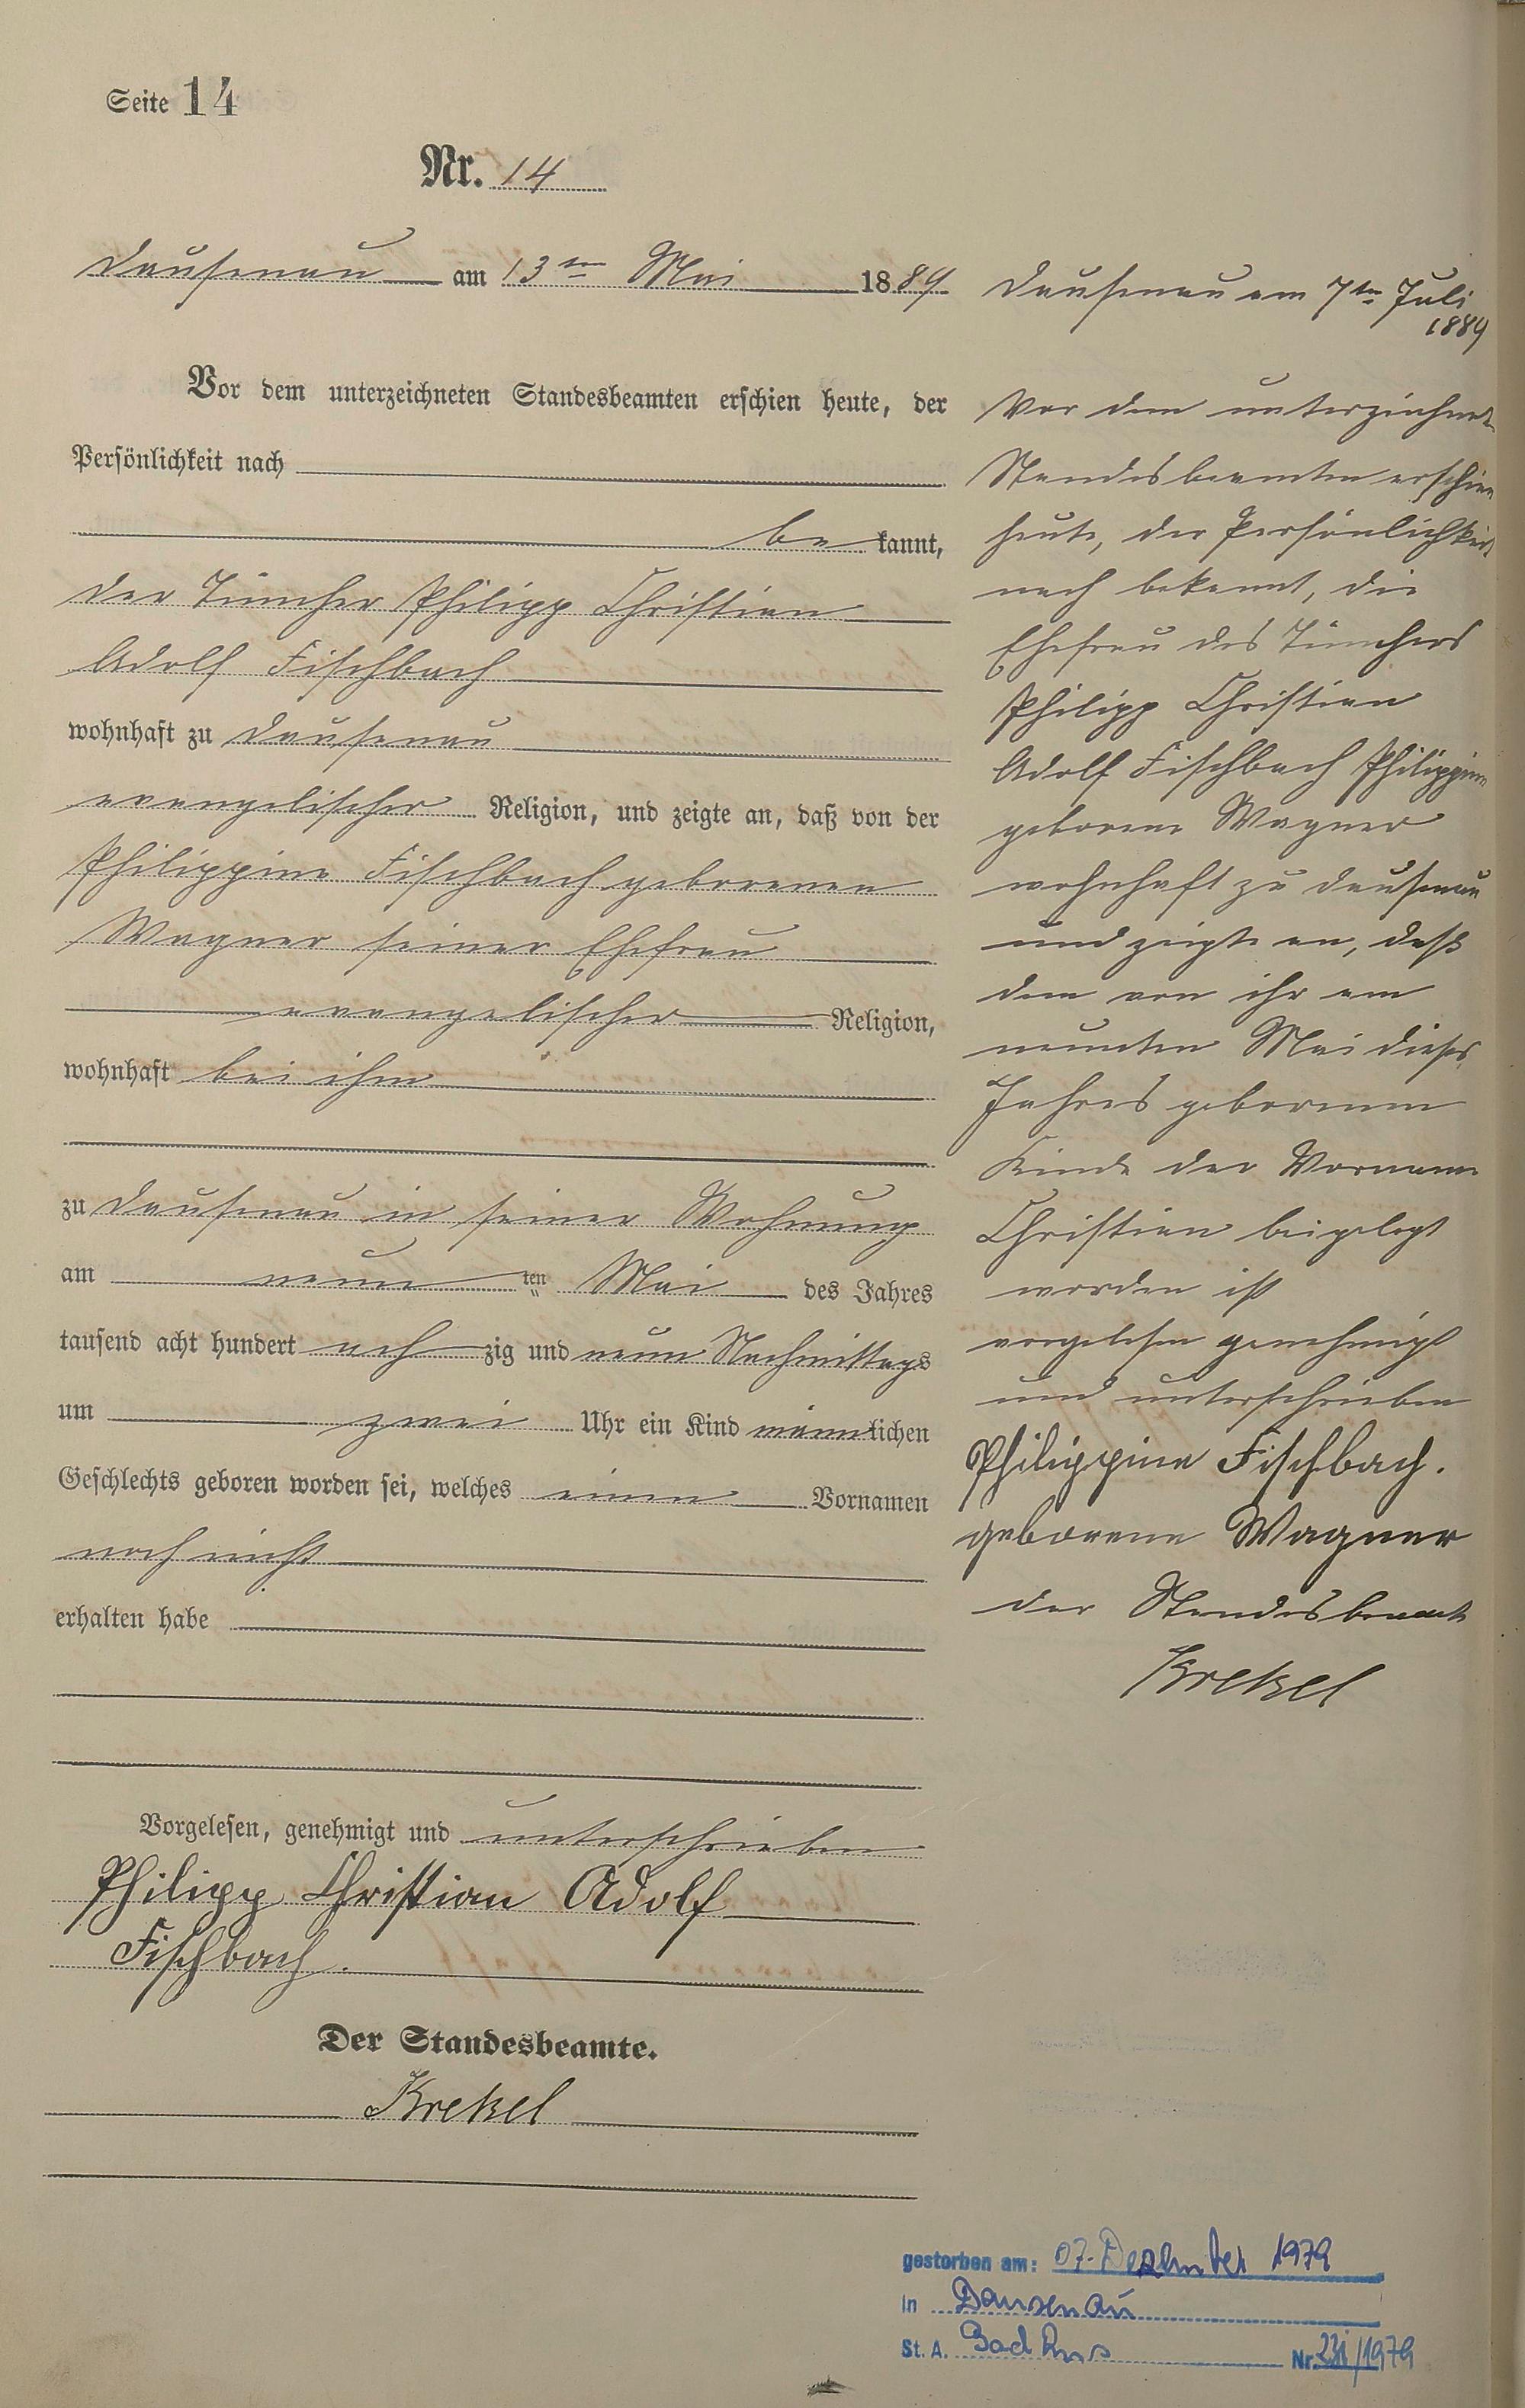 Seite 14
Nr. 14
Dausenau am 13ten Mai 1889
Vor dem unterzeichneten Standesbeamten erschien heute, der
Persönlichkeit nach
be kannt,
der Tüncher Philipp Christian
Adolf Fischbach
wohnhaft zu Dausenau
evangelischer Religion, und zeigte an, daß von der
Philippine Fischbach geborenen
Wagner seiner Ehefrau
evangelischer Religion,
wohnhaft bei ihm
zu Dausenau in seiner Wohnung
am neun ten Mai des Jahres
tausend acht hundert ach zig und neun Nachmittags
um zwei Uhr ein Kind männlichen
Geschlechts geboren worden sei, welches einen Vornamen
noch nicht
erhalten habe
Vorgelesen, genehmigt und unterschrieben
Philipp Christian Adolf
Fischbach.
Der Standesbeamte.
Krekel
Dausenau am 7ten Juli
1889
Vor dem unterzeichneten
Standesbeamten erschien
heute, der Persönlichkeit
nach bekannt, die
Ehefrau des Tünchers
Philipp Christian
Adolf Fischbach Philippine
geborene Wagner
wohnhaft zu Dausenau
und zeigte an, daß
dem von ihr am
neunten Mai dieses
Jahres geborenen
Kinde der Vorname
Christian beigelegt
worden ist
vorgelesen genehmigt
und unterschrieben
Philippine Fischbach.
geborene Wagner
der Standesbeamte
Krekel
gestorben am: 07. Dezember 1979
in Dausenau
St. A. Bad Ems Nr. 231/1979